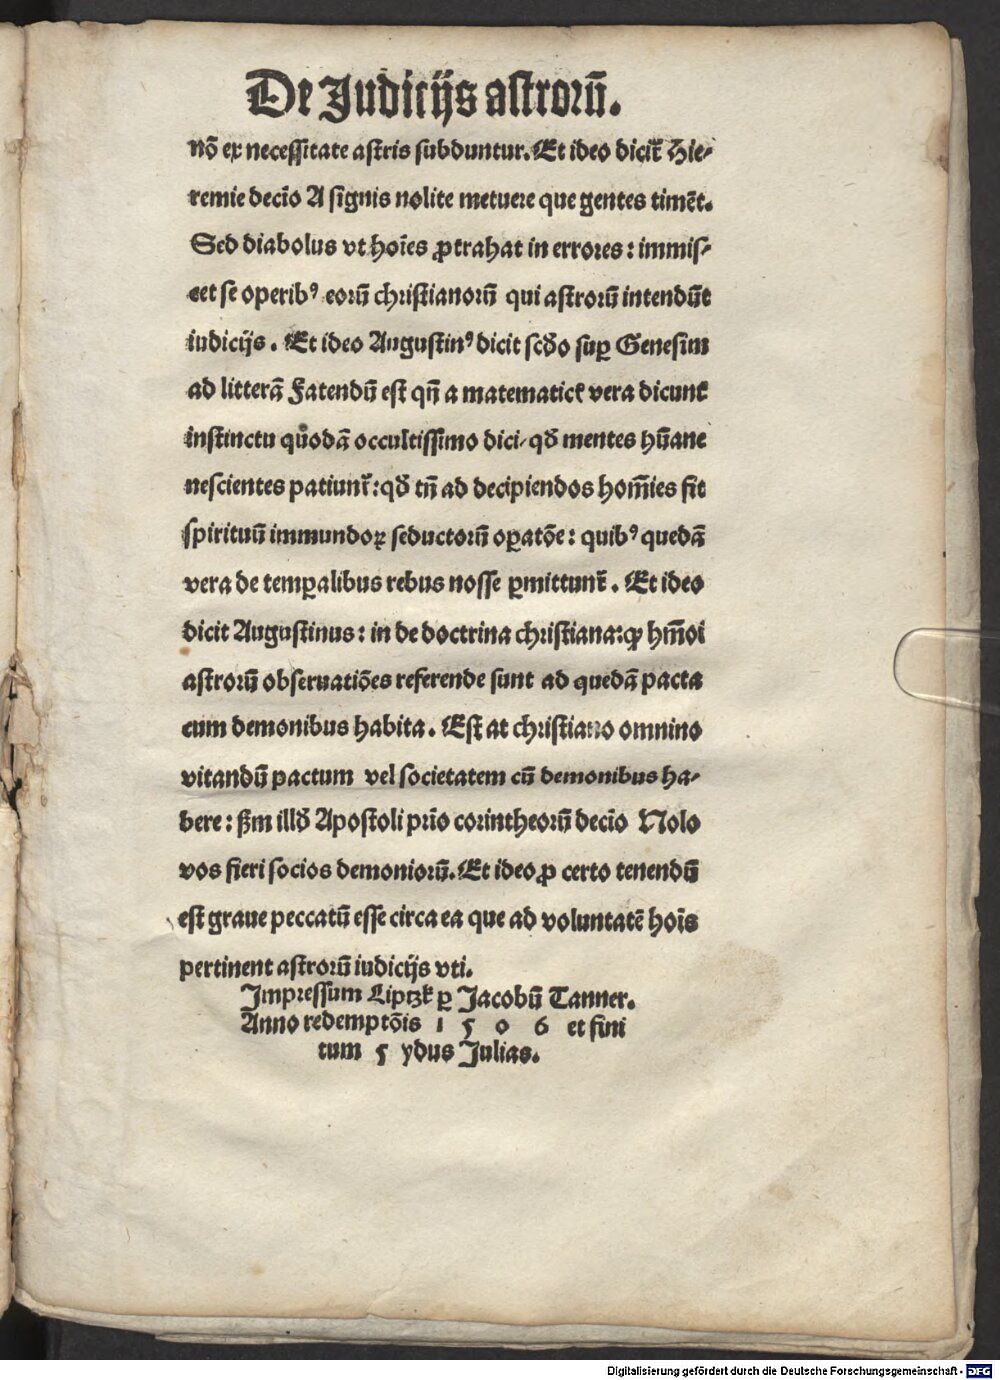 De Judicijs astrorū.
nō ex necessitate astris subduntur. Et ideo dicit᷑ Hie⸗
remie decīo A signis nolite metuere que gentes timēt.
Sed diabolus vt hoīes ꝓtrahat in errores: immis⸗
cet se operibꝰ eorū christianorū qui astrorū intendūt
iudicijs. Et ideo Augustinꝰ dicit scd̄o suꝑ Genesim
ad litterā Fatendū est qn̄ a matematicꝭ vera dicunt᷑
instinctu quodā occultissimo dici⸗ qd̄ mentes hūane
nescientes patiunt᷑: qd̄ tn̄ ad decipiendos hom̄ies fit
spirituū immundoꝝ seductorū oꝑatōe: quibꝰ quedā
vera de temꝑalibus rebus nosse ꝑmittunt᷑. Et ideo
dicit Augustinus: in de doctrina christiana: ꝙ hm̄oi
astrorū obseruatiōes referende sunt ad quedā pacta
cum demonibus habita. Est at christiano omnino
vitandū pactum vel societatem cū demonibus ha⸗
bere: ẜm illd̄ Apostoli prīo corintheorū decīo Nolo
vos fieri socios demoniorū. Et ideo ꝓ certo tenendū
est graue peccatū esse circa ea que ad voluntatē hoīs
pertinent astrorū iudicijs vti.
Impressum Liptzk ꝑ Jacobū Tanner.
Anno redemptōis 1 5 0 6 et fini
tum 5 ydus Julias.
Digitalisierung gefördert durch die Deutsche Forschungsgemeinschaft - DFG